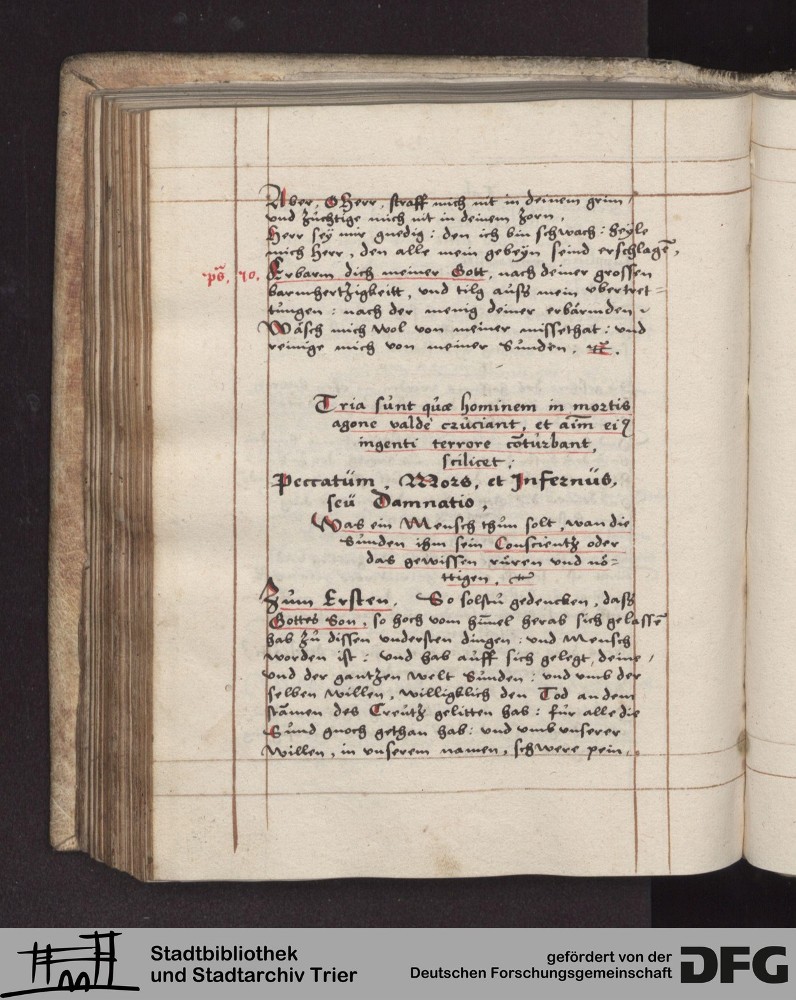 Aber, O Herr, straff mich nit in deinem grim,
und züchtige mich nit in deinem zorn,
Herr sey mir gnedig: den ich bin schwach: heyle
mich Herr, den alle mein gebeyn seind erschlagē,
ps̄. 50. Erbarm dich meiner Gott, nach deiner grossen
barmhertzigkeitt, und tilg auß mein vbertret=
tungen: nach der menig deiner erbärmden
Wäsch mich wol von meiner missethat: und
reinige mich von meiner Sunden. ꝛc.
Tria sunt quæ hominem in mortis
agone valde cruciant, et aīm eiꝰ
ingenti terrore cōturbant,
scilicet:
Peccatum, Mors, et Infernus,
seu Damnatio,
Was ein Mensch thun solt, wan die
Sunden ihm sein Conscientz oder
das gewissen ruren und nö=
ttigen. ꝛc
Zum Ersten. So solstu gedencken, daß
Gottes Son, so hoch vom hīmel herab sich gelassē
hab zu dissen understen dingen: und Mensch
worden ist: und hab auff sich gelegt, deine,
und der gantzen welt Sunden: und umb der
selben willen, willigklich den Tod an dem
stāmen des Creutz gelitten hab: für alle die
Sund gnoch gethan hab: und umb unserer
willen, in unserem namen, schwere pein,
Stadtbibliothek
und Stadtarchiv Trier
gefördert von der
Deutschen Forschungsgemeinschaft
DFG